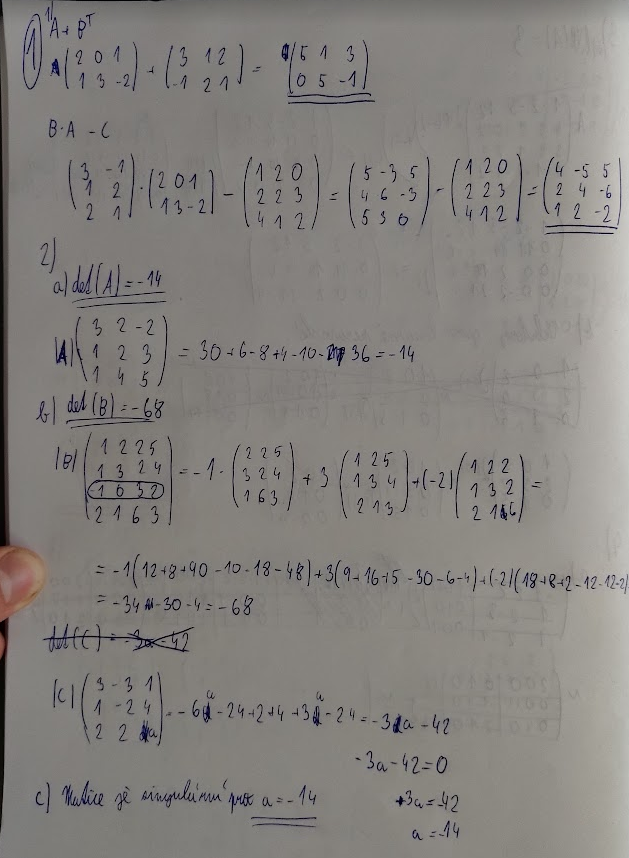 1) 1) A + B^T
(2 0 1 / 1 3 -2) + (3 1 2 / -1 2 1) = (5 1 3 / 0 5 -1)
B·A - C
(3 -1 / 1 2 / 2 1) · (2 0 1 / 1 3 -2) - (1 2 0 / 2 2 3 / 4 1 2) = (5 -3 5 / 4 6 -3 / 5 3 0) - (1 2 0 / 2 2 3 / 4 1 2) = (4 -5 5 / 2 4 -6 / 1 2 -2)
2)
a) det(A) = -14
|A| (3 2 -2 / 1 2 3 / 1 4 5) = 30 + 6 - 8 + 4 - 10 - 36 = -14
b) det(B) = -68
|B| (1 2 2 5 / 1 3 2 4 / -1 0 3 2 / 2 1 6 3) = -1 · (2 2 5 / 3 2 4 / 1 6 3) + 3 (1 2 5 / 1 3 4 / 2 1 3) + (-2) (1 2 2 / 1 3 2 / 2 1 6) =
= -1(12+8+90-10-18-48) + 3(9+16+5-30-6-4) + (-2)(18+8+2-12-12-2)
= -34 - 30 - 4 = -68
det(C) = -3a - 42
|C| (3 -3 1 / 1 -2 4 / 2 2 a) = -6a - 24 + 2 + 4 + 3a - 24 = -3a - 42
-3a - 42 = 0
+3a = -42
a = -14
c) Matice je singulární pro a = -14